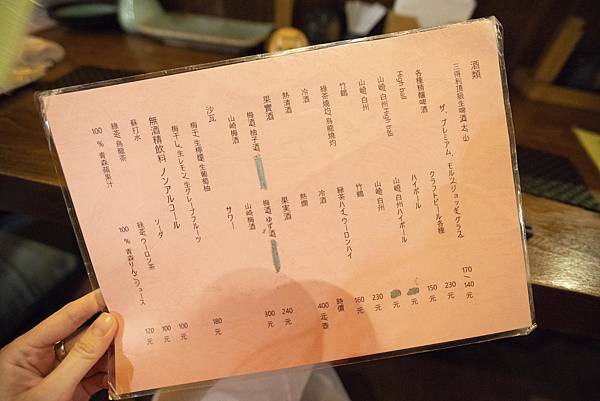 酒類
三得利頂級生啤酒 太, 小
ザ、プレミアム、モルツ(ジョッキ、グラス) 170 140 元
各種精釀啤酒 クラフトビール各種 230 元
High ball ハイボール 150 元
山崎, 白州 High ball 山崎, 白州ハイボール 元
山崎, 白州 山崎, 白州 元
竹鶴 竹鶴 230 元
綠茶燒灼, 烏龍燒灼 緑茶ハイ, ウーロンハイ 160 元
冷酒 冷酒 時價
熱清酒 熱燗 400 元/壺
果實酒 果実酒
梅酒, 柚子酒, 梅酒, ゆず酒, 240 元
山崎梅酒 山崎梅酒 300 元
沙瓦 サワー
梅干, 生檸檬, 生葡萄柚
梅干し, 生レモン, 生グレープフルーツ 180 元
無酒精飲料 ノンアルコール
蘇打水 ソーダ 100 元
綠茶, 烏龍茶 緑茶, ウーロン茶 100 元
100 % 青森蘋果汁 100 % 青森りんごジュース 120 元